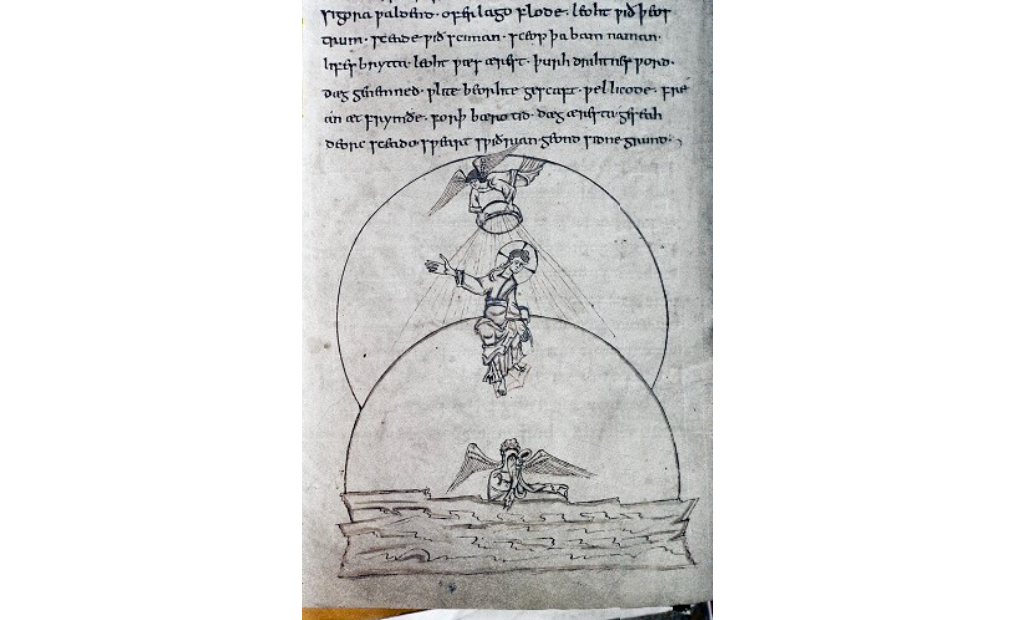 sigora ƿaldend· ofer lago flode· leoht ƿið þeos
trum· sceade ƿið sciman· sceop þa bam naman·
lifes brytta· leoht ƿæs ærest· þurh drihtnes ƿord·
dæg genemned· ƿlite beorhte gesceaft· ƿel licode· fre
an æt frymðe· forþ bæro tid· dæg æresta geseah
deorc sceado sƿeart sƿiðrian geond sidne grund·